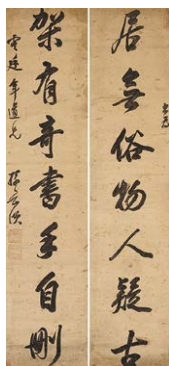 居無俗物人疑古
架有奇書手自刪
年道兄